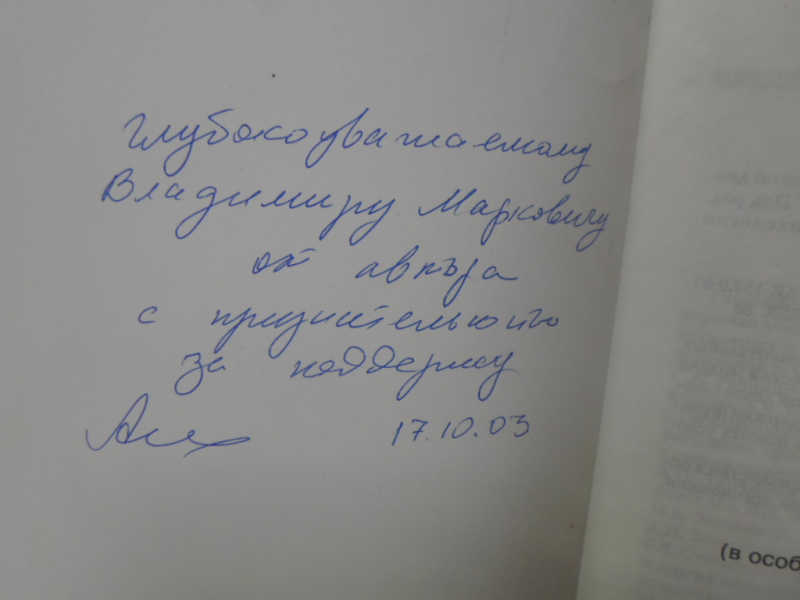 Глубокоуважаемому
Владимиру Марковичу
от автора
с признательностью
за поддержку
17.10.03
(в особ